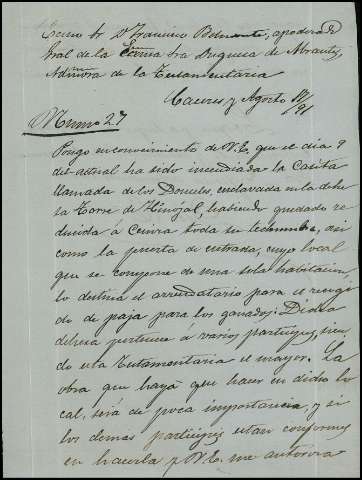 Excmo Sr Dn Francisco Belmonte, apoderado
gral de la Excma Sra Duquesa de Abrantes,
Admora de la Testamentaria
Caceres y Agosto 18/91
Numo 27
Pongo en conocimiento de V.E. que el dia 9
del actual ha sido incendiada la Casita
llamada de los Donceles, enclavada en la dehe
sa Torre de Hinojal, habiendo quedado re
ducida á Ceniza toda su techumbre, asi
como la puerta de entrada, cuyo local
que se compone de una sola habitacion,
lo destina el arrendatario para el recogi
do de paja para los ganados: Dicha
dehesa pertenece á varios participes, sien
do esta Testamentaria el mayor. La
obra que haya que hacer en dicho lo
cal, será de poca importancia, y si
los demas participes estan conformes
en hacerla y V.E. me autoriza